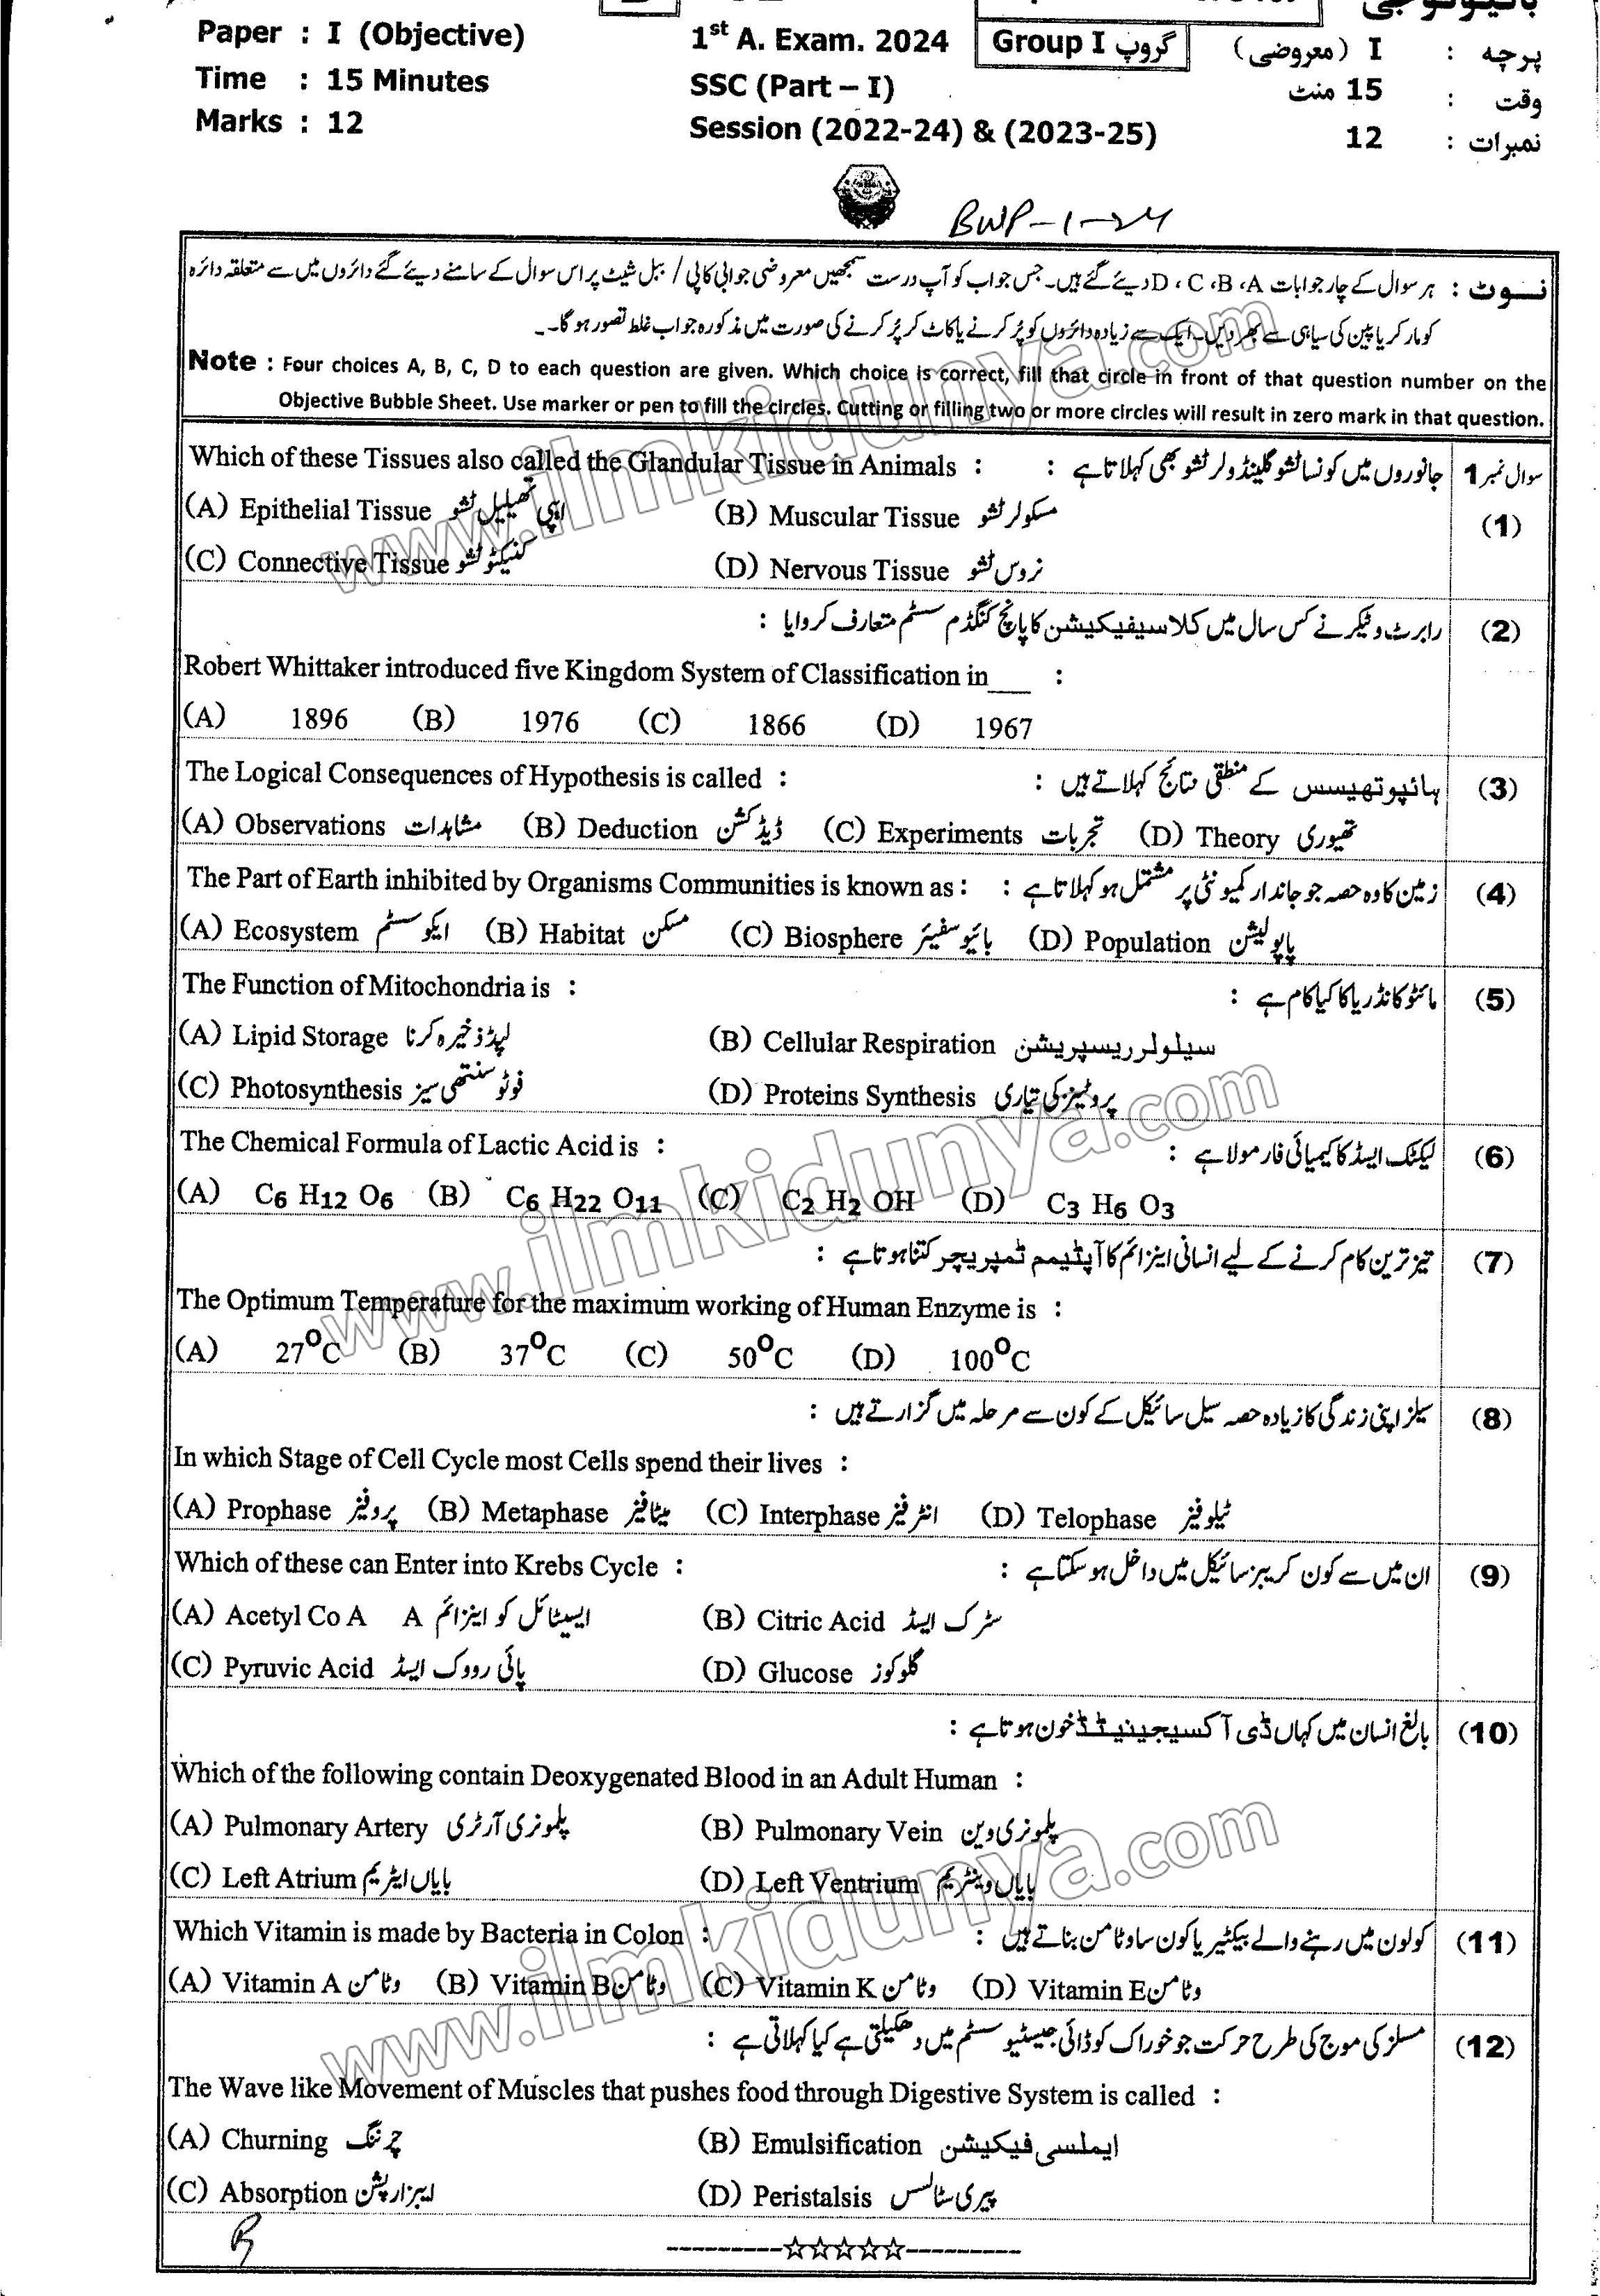 Paper : I (Objective)
Time : 15 Minutes
Marks : 12
1st A. Exam. 2024
SSC (Part – I)
Session (2022-24) & (2023-25)
Group I گروپ
پرچہ : I (معروضی)
وقت : 15 منٹ
نمبرات : 12
BWP-1-24
نوٹ : ہر سوال کے چار جوابات D ، C ، B ، A دیئے گئے ہیں۔ جس جواب کو آپ درست سمجھیں معروضی جوابی کاپی / ببل شیٹ پر اس سوال کے سامنے دیئے گئے دائروں میں سے متعلقہ دائرہ
کو مارکر یا پین کی سیاہی سے بھر دیں۔ ایک سے زیادہ دائروں کو پُر کرنے یا کاٹ کر پُر کرنے کی صورت میں مذکورہ جواب غلط تصور ہو گا۔
Note : Four choices A, B, C, D to each question are given. Which choice is correct, fill that circle in front of that question number on the
Objective Bubble Sheet. Use marker or pen to fill the circles. Cutting or filling two or more circles will result in zero mark in that question.
سوال نمبر 1
(1)
Which of these Tissues also called the Glandular Tissue in Animals : جانوروں میں کونسا ٹشو گلینڈولر ٹشو بھی کہلاتا ہے :
(A) Epithelial Tissue اپی تھیلیل ٹشو (B) Muscular Tissue مسکولر ٹشو
(C) Connective Tissue کنیکٹو ٹشو (D) Nervous Tissue نروس ٹشو
(2) رابرٹ وٹیکر نے کس سال میں کلاسیفیکیشن کا پانچ کنگڈم سسٹم متعارف کروایا :
Robert Whittaker introduced five Kingdom System of Classification in___ :
(A) 1896 (B) 1976 (C) 1866 (D) 1967
(3) The Logical Consequences of Hypothesis is called : ہائپوتھیسس کے منطقی نتائج کہلاتے ہیں :
(A) Observations مشاہدات (B) Deduction ڈیڈکشن (C) Experiments تجربات (D) Theory تھیوری
(4) The Part of Earth inhibited by Organisms Communities is known as : زمین کا وہ حصہ جو جاندار کمیونٹی پر مشتمل ہو کہلاتا ہے :
(A) Ecosystem ایکو سسٹم (B) Habitat مسکن (C) Biosphere بائیو سفیئر (D) Population پاپولیشن
(5) The Function of Mitochondria is : مائٹوکانڈریا کا کیا کام ہے :
(A) Lipid Storage لپڈ ذخیرہ کرنا (B) Cellular Respiration سیلولر ریسپریشن
(C) Photosynthesis فوٹو سنتھی سیز (D) Proteins Synthesis پروٹینز کی تیاری
(6) The Chemical Formula of Lactic Acid is : لیکٹک ایسڈ کا کیمیائی فارمولا ہے :
(A) C6 H12 O6 (B) C6 H22 O11 (C) C2 H2 OH (D) C3 H6 O3
(7) تیز ترین کام کرنے کے لیے انسانی اینزائم کا آپٹیمم ٹمپریچر کتنا ہوتا ہے :
The Optimum Temperature for the maximum working of Human Enzyme is :
(A) 27°C (B) 37°C (C) 50°C (D) 100°C
(8) سیلز اپنی زندگی کا زیادہ حصہ سیل سائیکل کے کون سے مرحلہ میں گزارتے ہیں :
In which Stage of Cell Cycle most Cells spend their lives :
(A) Prophase پروفیز (B) Metaphase میٹافیز (C) Interphase انٹرفیز (D) Telophase ٹیلوفیز
(9) Which of these can Enter into Krebs Cycle : ان میں سے کون کریبز سائیکل میں داخل ہو سکتا ہے :
(A) Acetyl Co A ایسیٹائل کو اینزائم A (B) Citric Acid سٹرک ایسڈ
(C) Pyruvic Acid پائی رووک ایسڈ (D) Glucose گلوکوز
(10) بالغ انسان میں کہاں ڈی آکسیجینیٹڈ خون ہوتا ہے :
Which of the following contain Deoxygenated Blood in an Adult Human :
(A) Pulmonary Artery پلمونری آرٹری (B) Pulmonary Vein پلمونری وین
(C) Left Atrium بایاں ایٹریم (D) Left Ventrium بایاں وینٹریم
(11) Which Vitamin is made by Bacteria in Colon : کولون میں رہنے والے بیکٹیریا کون سا وٹامن بناتے ہیں :
(A) Vitamin A وٹامن (B) Vitamin B وٹامن (C) Vitamin K وٹامن (D) Vitamin E وٹامن
(12) مسلز کی موج کی طرح حرکت جو خوراک کو ڈائی جیسٹیو سسٹم میں دھکیلتی ہے کیا کہلاتی ہے :
The Wave like Movement of Muscles that pushes food through Digestive System is called :
(A) Churning چرننگ (B) Emulsification ایملسی فیکیشن
(C) Absorption ایبزارپشن (D) Peristalsis پیری سٹالسس
www.ilmkidunya.com
www.ilmkidunya.com
www.ilmkidunya.com